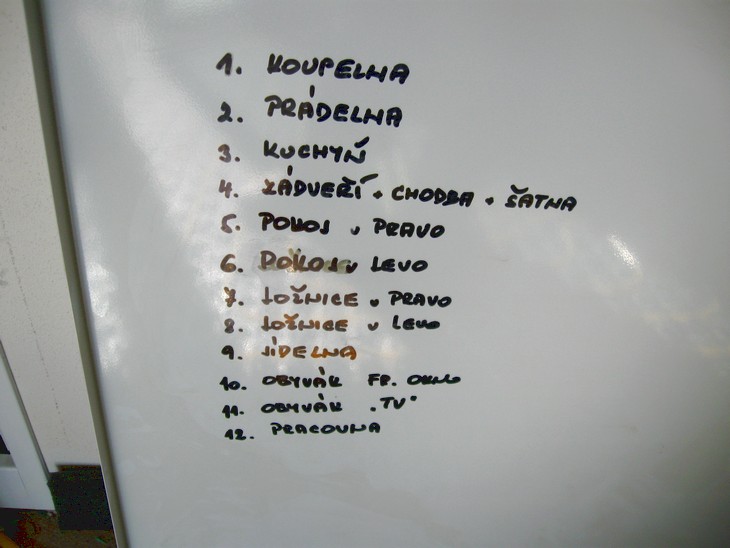 1. KOUPELNA
2. PRÁDELNA
3. KUCHYŇ
4. ZÁDVEŘÍ + CHODBA + ŠATNA
5. POKOJ v PRAVO
6. POKOJ v LEVO
7. LOŽNICE v PRAVO
8. LOŽNICE v LEVO
9. JÍDELNA
10. OBYVÁK FR. OKNO
11. OBYVÁK "TV"
12. PRACOVNA